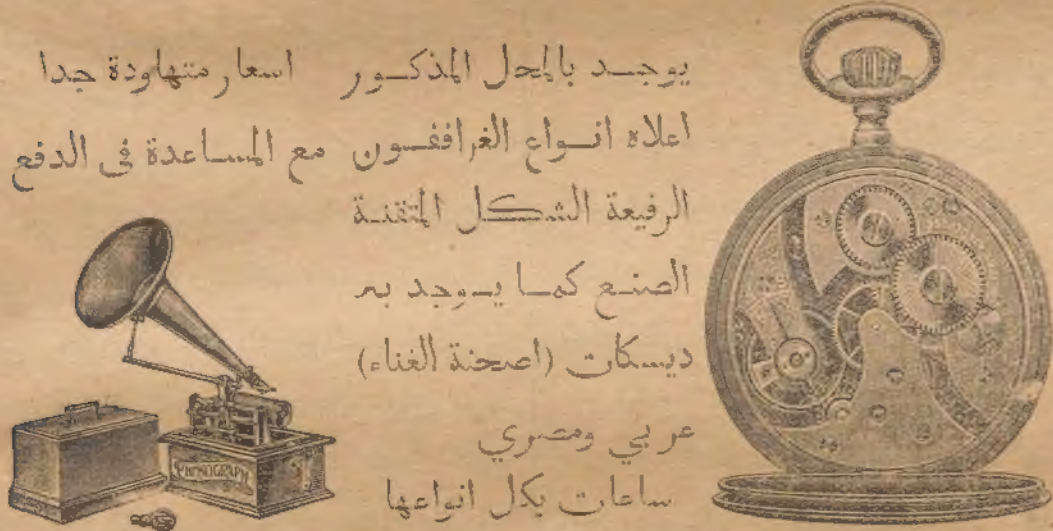 يوجد بالمحل المذكور
اعلاه انواع الغرافغون
الرفيعة الشكل المتقنة
الصنع كما يوجد به
ديسكات (اصحنة الغناء)
عربي ومصري
ساعات بكل انواعها
اسعار متهاودة جدا
مع المساعدة في الدفع
PHONOGRAPH